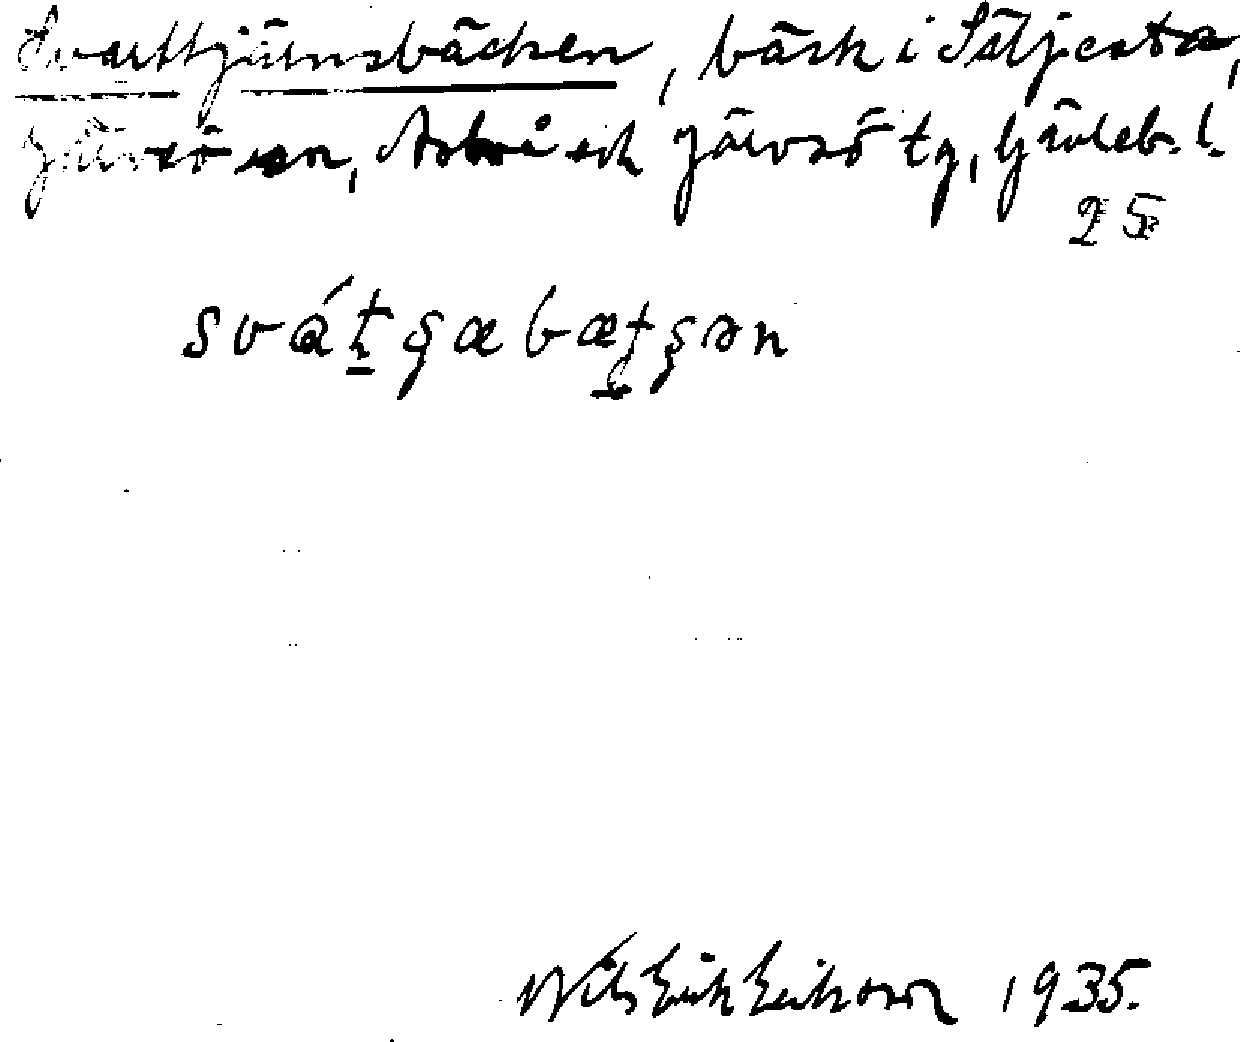 Svarttjärnsbäcken, bäck i Säljesta,
Järvsö sn, Arbrå och Järvsö tg, Gävleb. l.
25
svátʂæbætʂən
Nils Erik Eriksson 1935.